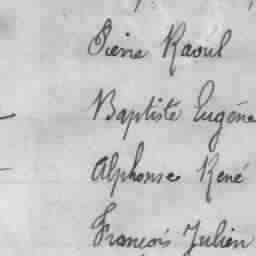 Pierre Raoul
Baptiste Eugène
Alphonse René
François Julien